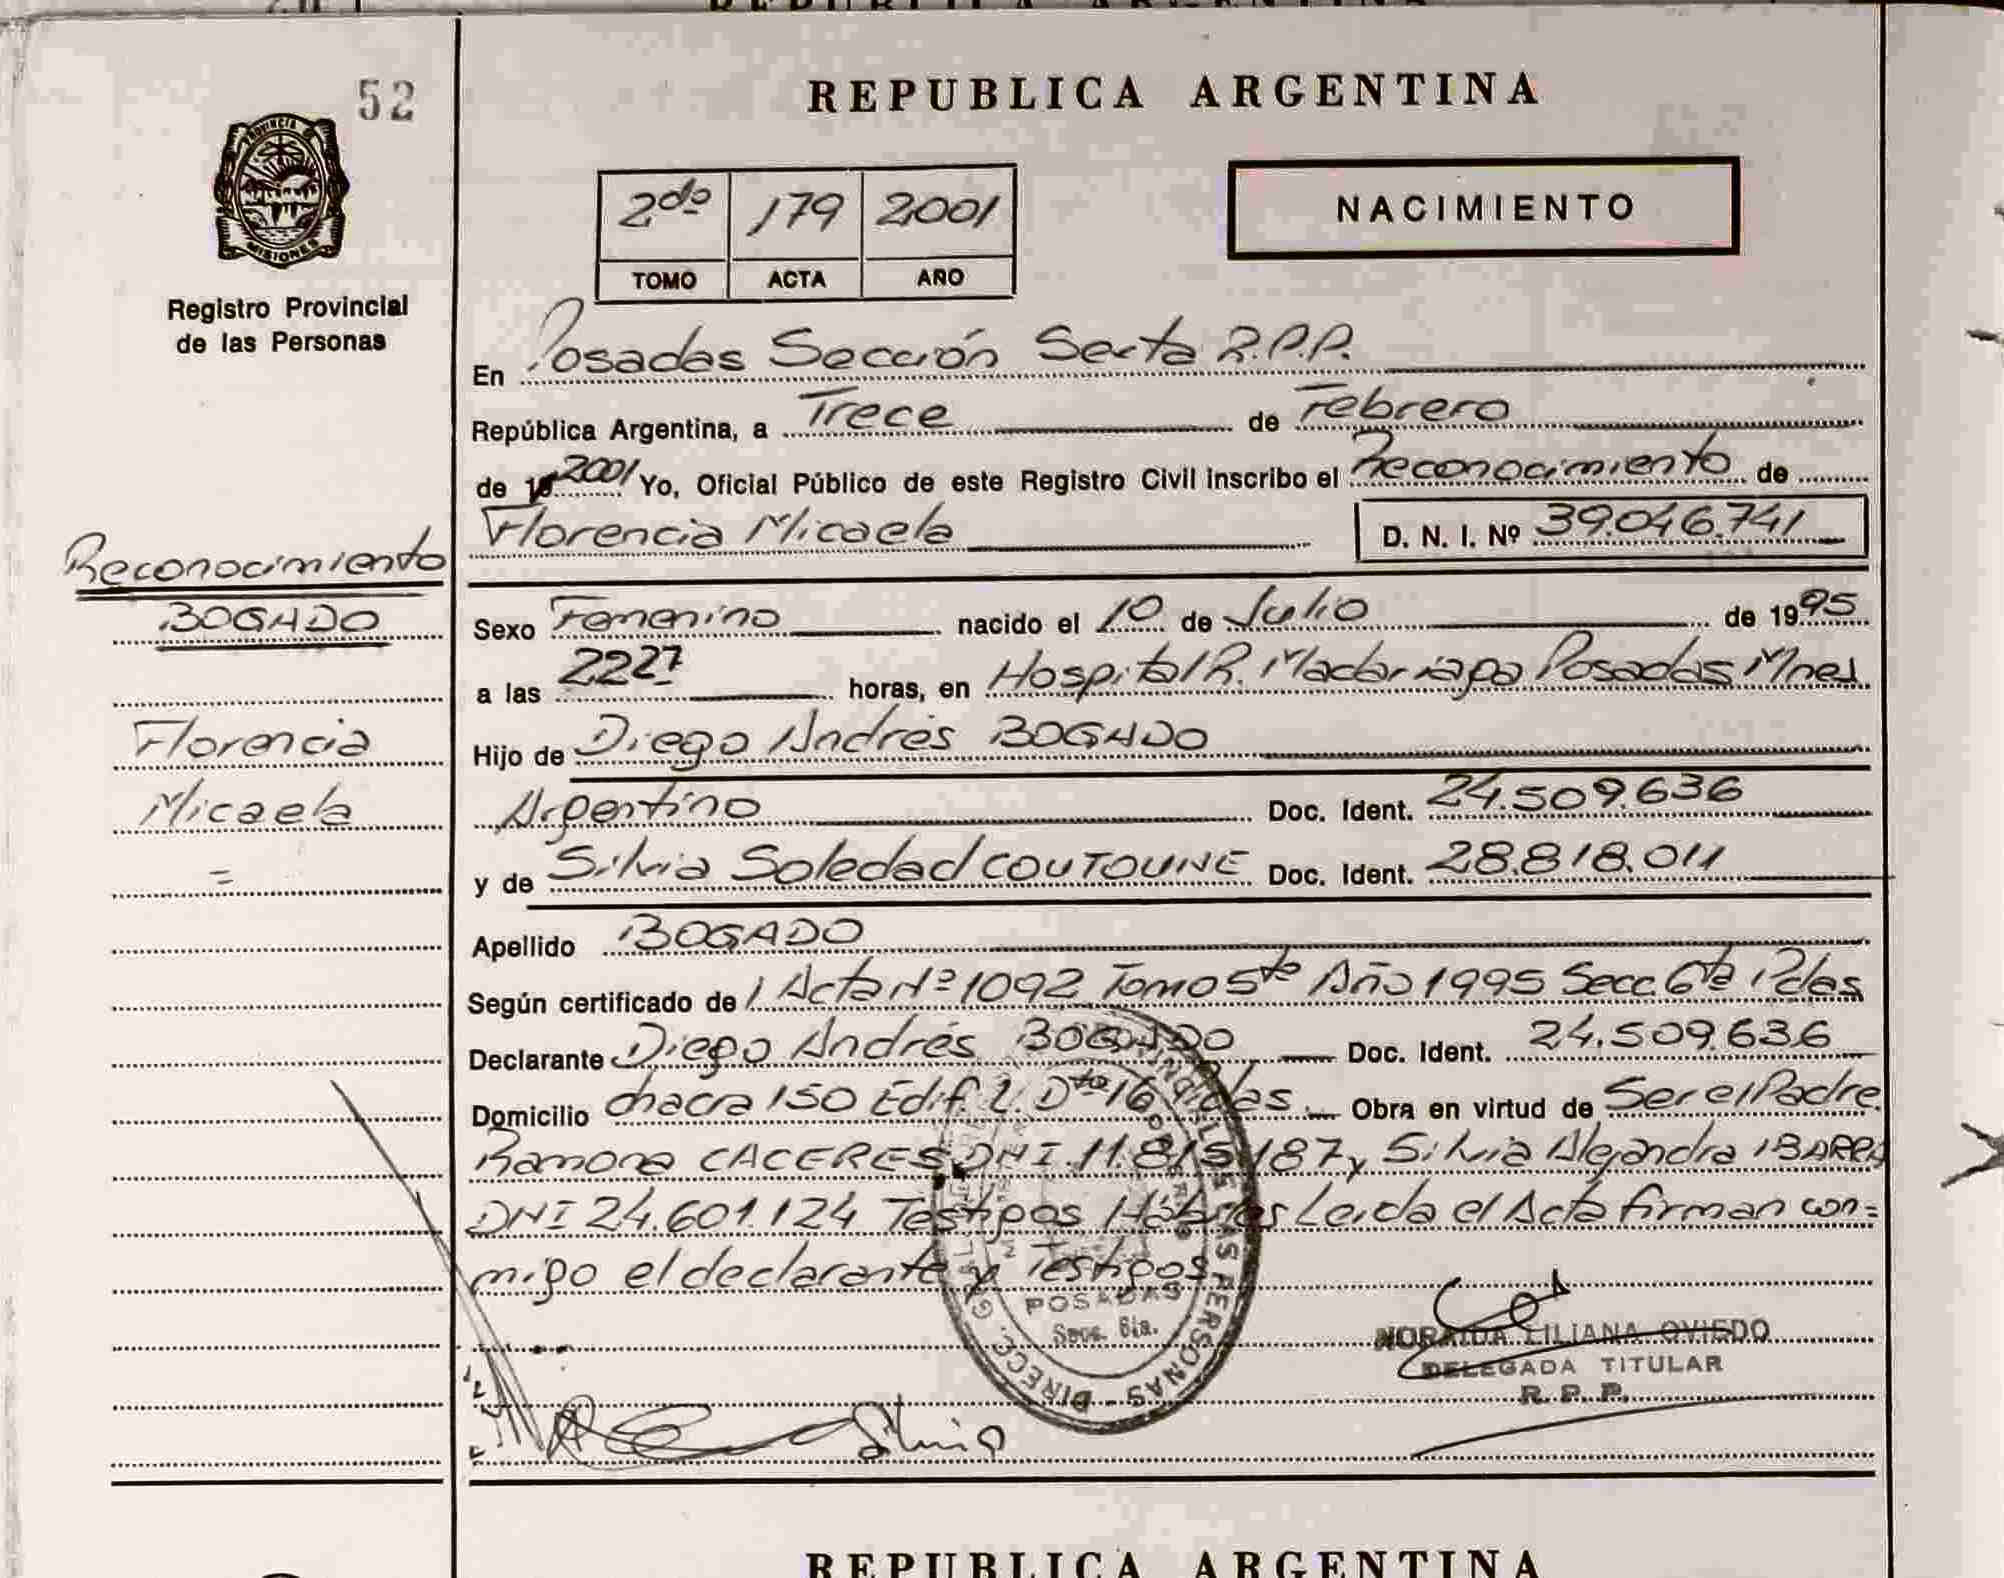 REPUBLICA ARGENTINA
52
PROVINCIA DE
MISIONES
Registro Provincial
de las Personas
2do 179 2001
TOMO ACTA AÑO
NACIMIENTO
En Posadas Sección Sexta R.P.P.
República Argentina, a Trece de Febrero
de 2001 Yo, Oficial Público de este Registro Civil inscribo el Reconocimiento de
Florencia Micaela D. N. I. Nº 39.046.741
Reconocimiento
BOGADO
Florencia
Micaela
=
Sexo Femenino nacido el 10 de Julio de 1995
a las 22 27 horas, en Hospital R. Madariaga Posadas Mnes
Hijo de Diego Andrés BOGADO
Argentino Doc. Ident. 24.509.636
y de Silvia Soledad COUTOUNE Doc. Ident. 28.818.011
Apellido BOGADO
Según certificado de Acta Nº 1092 Tomo 5to Año 1995 Secc. 6ta Pdas
Declarante Diego Andrés BOGADO Doc. Ident. 24.509.636
Domicilio chacra 150 Edif. 2. Dto 16 Pdas Obra en virtud de Ser el Padre.
Ramona CACERES DNI 11.815.187 y Silvia Alejandra IBARRA
DNI 24.601.124 Testigos Hábiles Leida el Acta firman con=
migo el declarante y Testigos
POSADAS
Secc. 6ta.
NORAIDA LILIANA OVIEDO
DELEGADA TITULAR
R. P. P.
Silvia
REPUBLICA ARGENTINA